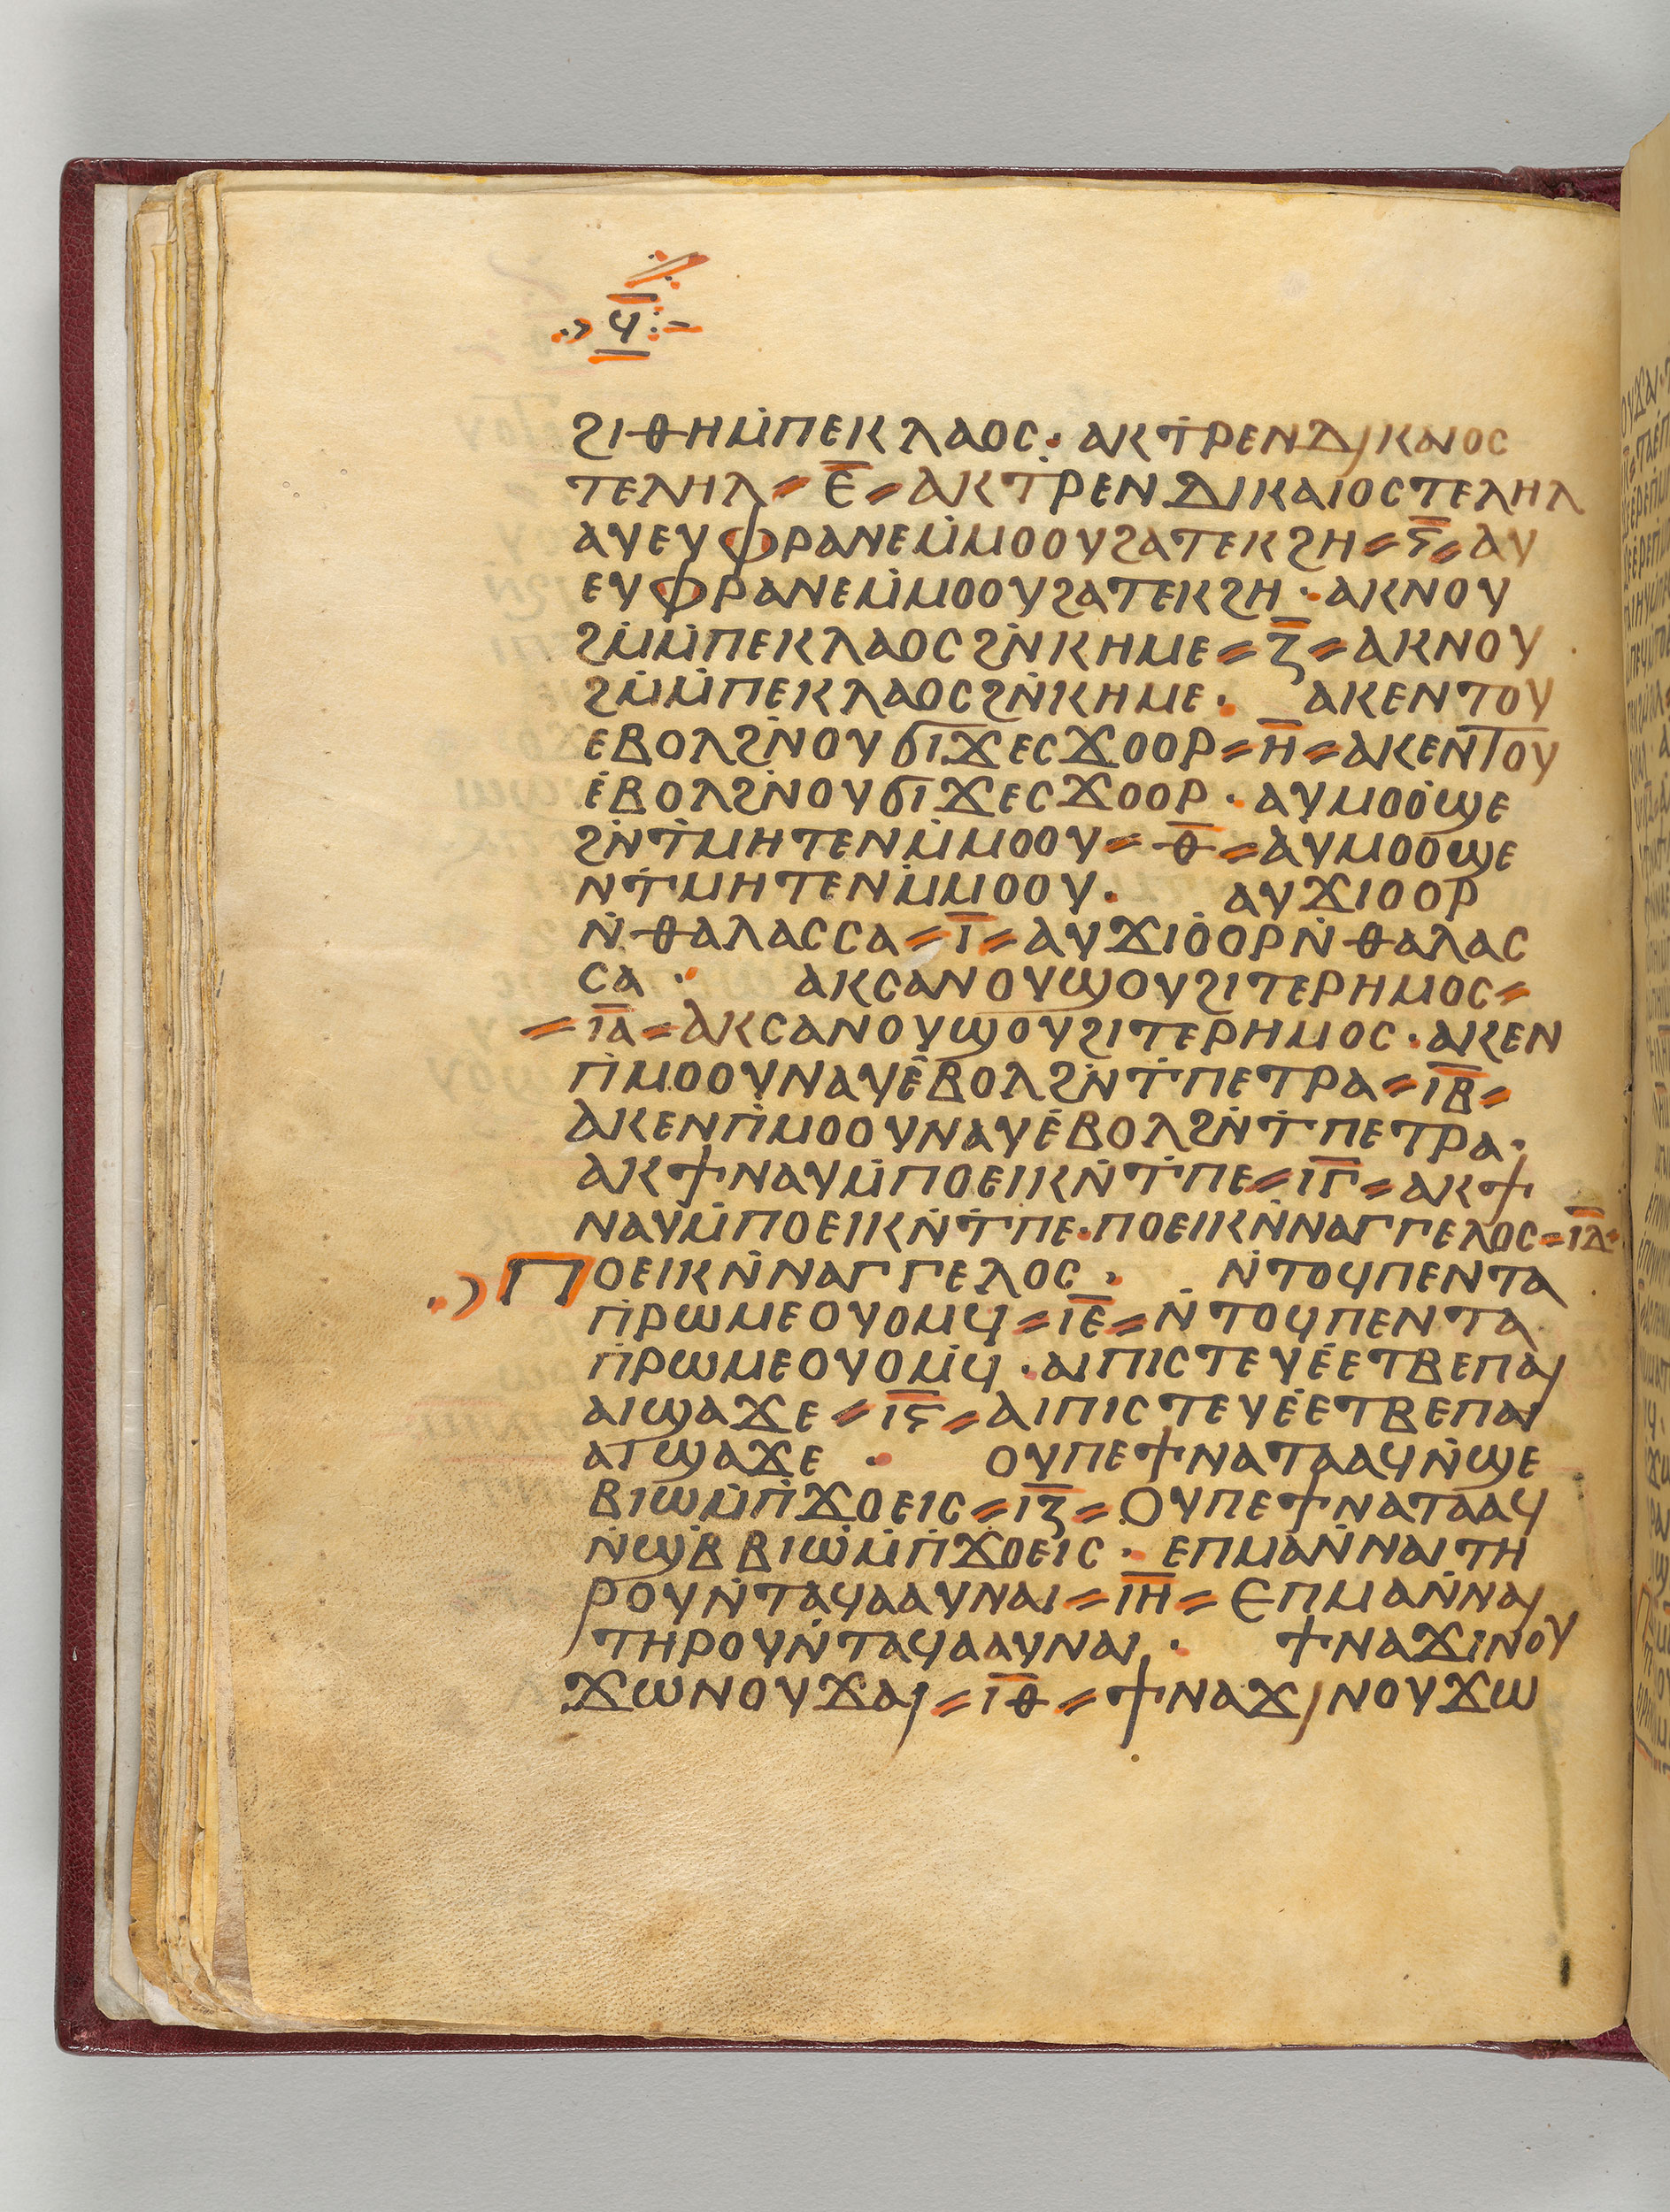 ϥ̅
ϩⲓⲑⲏⲙ̇ⲡⲉⲕⲗⲁⲟⲥ· ⲁⲕⲧ̇ⲣⲉⲛⲇⲓⲕⲁⲓⲟⲥ
ⲧⲉⲗⲏⲗ⸗ⲉ̅⸗ⲁⲕⲧ̇ⲣⲉⲛⲇⲓⲕⲁⲓⲟⲥⲧⲉⲗⲏⲗ
ⲁⲩⲉⲩⲫⲣⲁⲛⲉⲙ̇ⲙⲟⲟⲩϩⲁⲧⲉⲕϩⲏ⸗ⲋ̅⸗ⲁⲩ
ⲉⲩⲫⲣⲁⲛⲉⲙ̇ⲙⲟⲟⲩϩⲁⲧⲉⲕϩⲏ·ⲁⲕⲛⲟⲩ
ϩⲙ̇ⲙ̇ⲡⲉⲕⲗⲁⲟⲥϩⲛ̇ⲕⲏⲙⲉ⸗ⲍ̅⸗ⲁⲕⲛⲟⲩ
ϩⲙ̇ⲙ̇ⲡⲉⲕⲗⲁⲟⲥϩⲛ̇ⲕⲏⲙⲉ· ⲁⲕⲉⲛⲧⲟⲩ
ⲉⲃⲟⲗϩⲛ̇ⲟⲩϭⲓϫⲉⲥϫⲟⲟⲣ⸗ⲏ̅⸗ⲁⲕⲉⲛⲧⲟⲩ
ⲉ̇ⲃⲟⲗϩⲛ̇ⲟⲩϭⲓϫⲉⲥϫⲟⲟⲣ·ⲁⲩⲙⲟⲟ̇ϣⲉ
ϩⲛ̇ⲧ̇ⲙⲏⲧⲉⲛⲙ̇ⲙⲟⲟⲩ⸗ⲑ̅⸗ⲁⲩⲙⲟⲟϣⲉ
ⲛⲧ̇ⲙⲏⲧⲉⲛⲙ̇ⲙⲟⲟⲩ· ⲁⲩϫⲓⲟⲟⲣ
ⲛ̇ⲑⲁⲗⲁⲥⲥⲁ⸗ⲓ̅⸗ⲁⲩϫⲓⲟ̇ⲟⲣⲛ̇ⲑⲁⲗⲁⲥ
ⲥⲁ· ⲁⲕⲥⲁⲛⲟⲩϣⲟⲩϩⲓⲧⲉⲣⲏⲙⲟⲥ⸗
⸗ⲓ̅ⲁ̅⸗ⲁⲕⲥⲁⲛⲟⲩϣⲟⲩϩⲓⲧⲉⲣⲏⲙⲟⲥ·ⲁⲕⲉⲛ
ⲡ̇ⲙⲟⲟⲩⲛⲁⲩⲉ̇ⲃⲟⲗϩⲛ̇ⲧ̇ⲡⲉⲧⲣⲁ⸗ⲓ̅ⲃ̅⸗
ⲁⲕⲉⲛⲡ̇ⲙⲟⲟⲩⲛⲁⲩⲉ̇ⲃⲟⲗϩⲛ̇ⲧ̇ⲡⲉⲧⲣⲁ·
ⲁⲕϯⲛⲁⲩⲙ̇ⲡⲟⲉⲓⲕⲛ̇ⲧ̇ⲡⲉ⸗ⲓ̅ⲅ̅⸗ⲁⲕϯ
ⲛⲁⲩⲙ̇ⲡⲟⲉⲓⲕⲛ̇ⲧ̇ⲡⲉ·ⲡⲟⲉⲓⲕⲛ̇ⲛⲁⲅⲅⲉⲗⲟⲥ⸗ⲓ̅ⲇ̅⸗
ⲡⲟⲉⲓⲕⲛ̇ⲛⲁⲅⲅⲉⲗⲟⲥ· ⲛ̇ⲧⲟϥⲡⲉⲛⲧⲁ
ⲡ̇ⲣⲱⲙⲉⲟⲩⲟⲙϥ⸗ⲓ̅ⲉ̅⸗ⲛ̇ⲧⲟϥⲡⲉⲛⲧⲁ
ⲡ̇ⲣⲱⲙⲉⲟⲩⲟⲙ̇ϥ·ⲁⲓⲡⲓⲥⲧⲉⲩⲉ̇ⲉⲧⲃⲉⲡⲁⲓ
ⲁⲓϣⲁϫⲉ⸗ⲓ̅ⲋ̅⸗ⲁⲓⲡⲓⲥⲧⲉⲩⲉ̇ⲉⲧⲃⲉⲡⲁⲓ
ⲁⲓϣⲁϫⲉ · ⲟⲩⲡⲉϯⲛⲁⲧⲁⲁϥⲛ̇ϣⲉ
ⲃⲓⲱⲙ̇ⲡ̇ϫⲟⲉⲓⲥ⸗ⲓ̅ⲍ̅⸗ⲟⲩⲡⲉϯⲛⲁⲧⲁⲁϥ
ⲛ̇ϣⲃ̇ⲃⲓⲱ̇ⲙ̇ⲡ̇ϫⲟⲉⲓⲥ·ⲉⲡⲙⲁⲛ̇ⲛⲁⲓⲧⲏ
ⲣⲟⲩⲛ̇ⲧⲁϥⲁⲁⲩⲛⲁⲓ⸗ⲓ̅ⲏ̅⸗ⲉⲡⲙⲁⲛ̇ⲛⲁⲓ
ⲧⲏⲣⲟⲩⲛ̇ⲧⲁϥⲁⲁⲩⲛⲁⲓ· ϯⲛⲁϫⲓⲛⲟⲩ
ϫⲱⲛⲟⲩϫⲁⲓ⸗ⲓ̅ⲑ̅⸗ϯⲛⲁϫⲓⲛⲟⲩϫⲱ